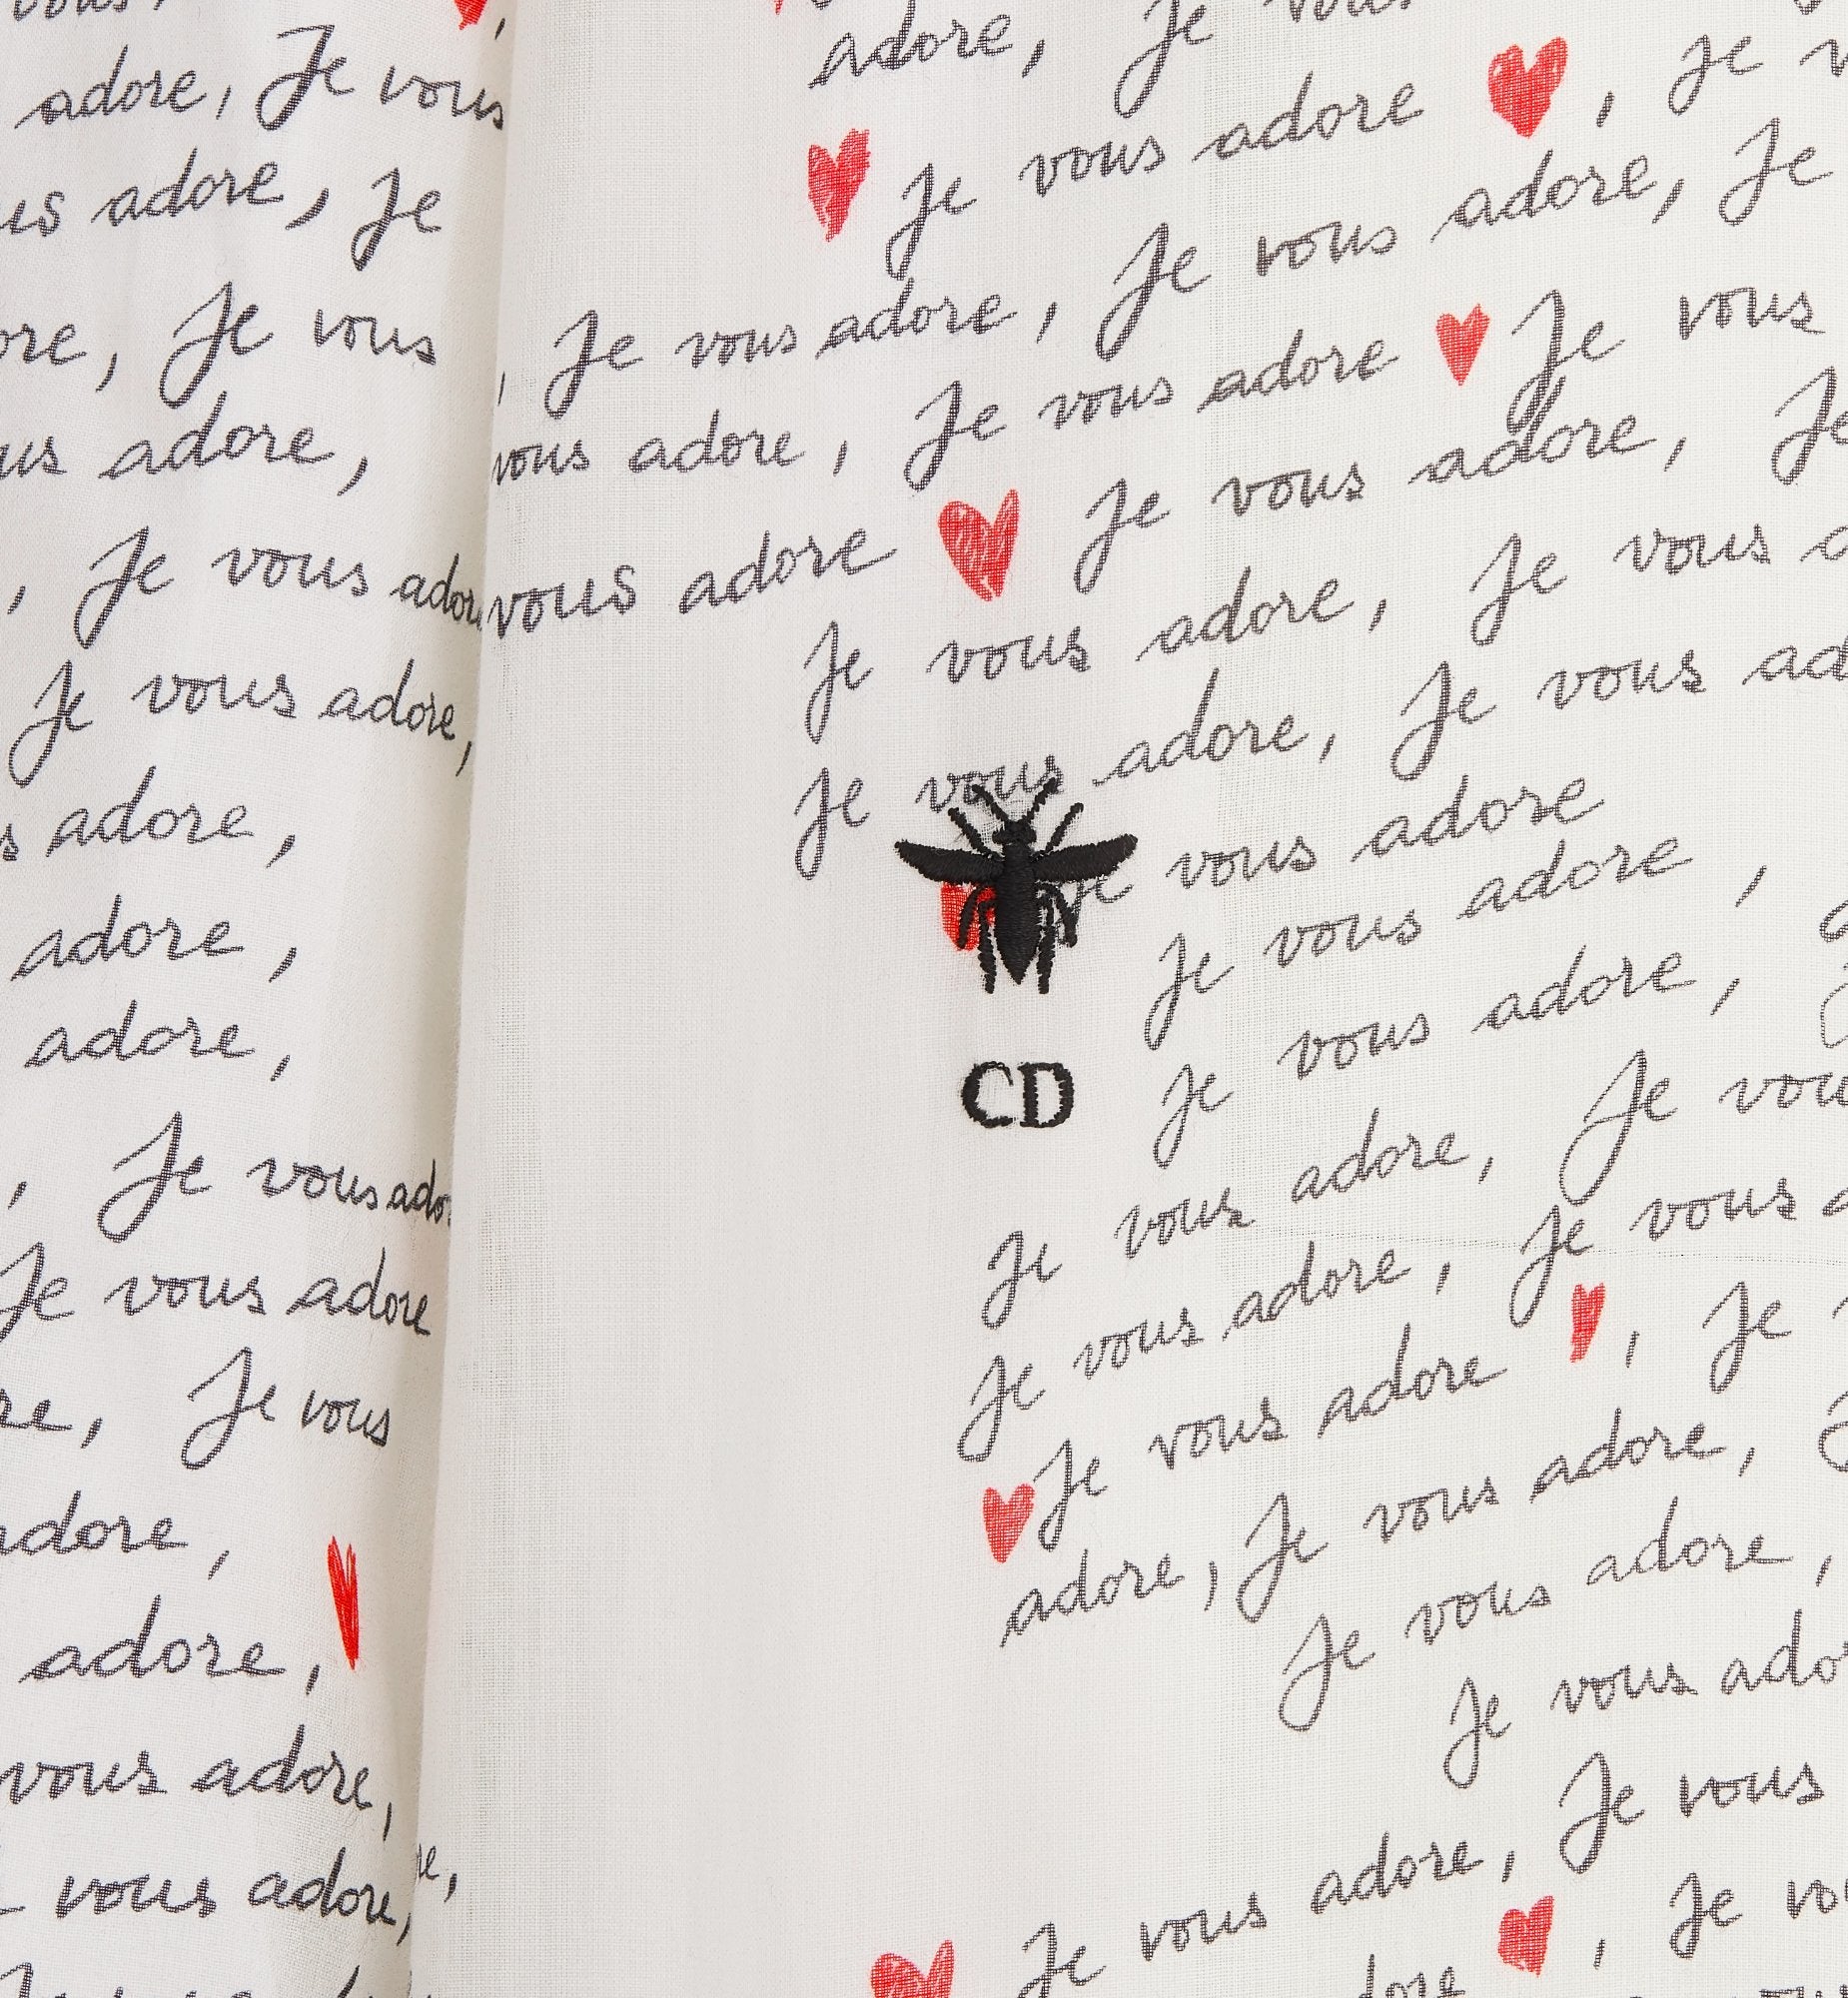 adore, Je vous
us adore, Je
ore, Je vous
us adore,
, Je vous adore
Je vous adore,
s adore,
adore,
adore,
, Je vous ado
Je vous adore
re, Je vous
adore,
adore,
vous adore,
vous adore,
adore, Je vous
Je vous adore, Je v
Je vous adore, Je
, Je vous adore, Je vous adore, Je
vous adore, Je vous adore Je vous
vous adore Je vous adore, Je
Je vous adore, Je vous a
Je vous adore, Je vous ad
Je vous adore
CD
Je vous adore,
Je vous adore,
Je vous adore, Je vou
Je vous adore, Je vous a
Je vous adore, Je
adore, Je vous adore,
Je vous adore,
Je vous ado
Je vous adore, Je vous
re,
Je vo